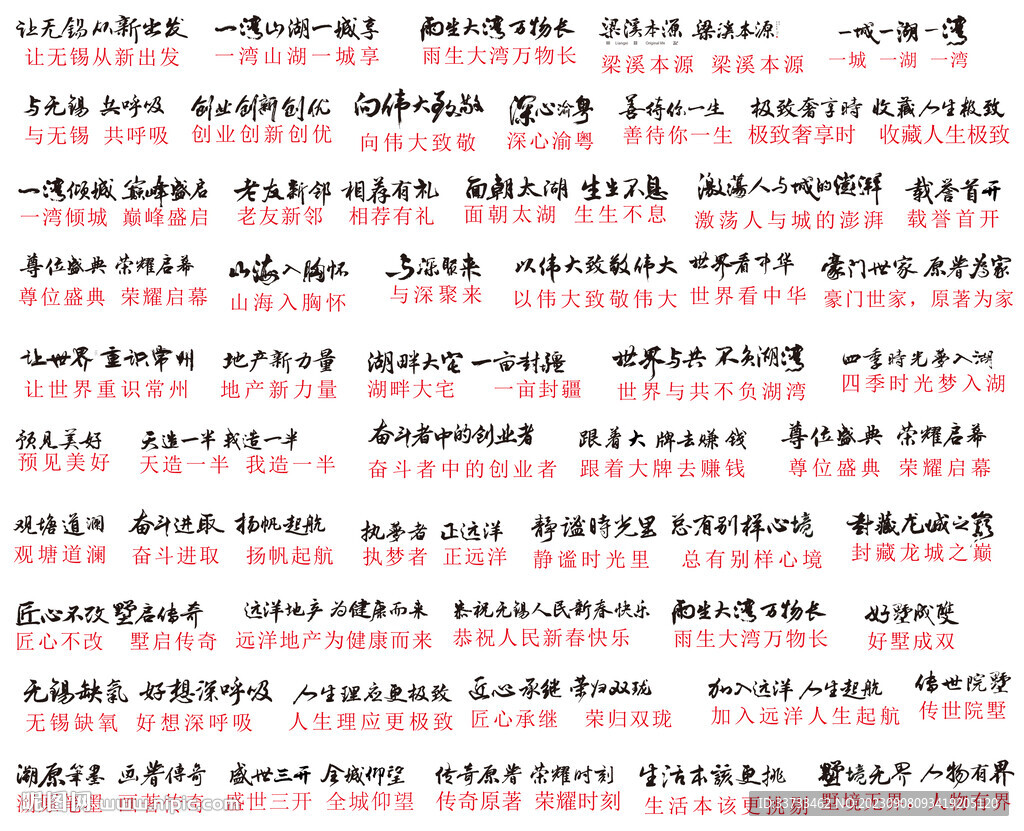 让无锡从新出发 一湾山湖一城享 雨生大湾万物长 梁溪本源 梁溪本源 一城一湖一湾
让无锡从新出发 一湾山湖一城享 雨生大湾万物长 梁溪本源 梁溪本源 一城 一湖 一湾
与无锡 共呼吸 创业创新创优 向伟大致敬 深心渝粤 善待你一生 极致奢享時 收藏人生极致
与无锡 共呼吸 创业创新创优 向伟大致敬 深心渝粤 善待你一生 极致奢享时 收藏人生极致
一湾倾城 巅峰盛启 老友新邻 相荐有礼 面朝太湖 生生不息 激荡人与城的澎湃 载誉首开
一湾倾城 巅峰盛启 老友新邻 相荐有礼 面朝太湖 生生不息 激荡人与城的澎湃 载誉首开
尊位盛典 荣耀启幕 山海入胸怀 与深聚来 以伟大致敬伟大 世界看中华 豪门世家 原著为家
尊位盛典 荣耀启幕 山海入胸怀 与深聚来 以伟大致敬伟大 世界看中华 豪门世家，原著为家
让世界 重识常州 地产新力量 湖畔大宅 一亩封疆 世界与共 不负湖湾 四季時光梦入湖
让世界重识常州 地产新力量 湖畔大宅 一亩封疆 世界与共不负湖湾 四季时光梦入湖
预见美好 天造一半 我造一半 奋斗者中的创业者 跟着大牌去赚钱 尊位盛典 荣耀启幕
预见美好 天造一半 我造一半 奋斗者中的创业者 跟着大牌去赚钱 尊位盛典 荣耀启幕
观塘道澜 奋斗进取 扬帆起航 执梦者 正远洋 静谧時光里 总有别样心境 封藏龙城之巅
观塘道澜 奋斗进取 扬帆起航 执梦者 正远洋 静谧时光里 总有别样心境 封藏龙城之巅
匠心不改 墅启传奇 远洋地产 为健康而来 恭祝无锡人民新春快乐 雨生大湾万物长 好墅成雙
匠心不改 墅启传奇 远洋地产为健康而来 恭祝人民新春快乐 雨生大湾万物长 好墅成双
无锡缺氧 好想深呼吸 人生理应更极致 匠心承继 荣归双珑 加入远洋 人生起航 传世院墅
无锡缺氧 好想深呼吸 人生理应更极致 匠心承继 荣归双珑 加入远洋人生起航 传世院墅
湖原笔墨 画著传奇 盛世三开 全城仰望 传奇原著 荣耀时刻 生活本該更挑 墅境无界 人物有界
盛世三开 全城仰望 传奇原著 荣耀时刻 生活本该更挑剔 墅境无界 人物有界
昵图网 www.nipic.com
ID:33733462 NO:20230908093419205120